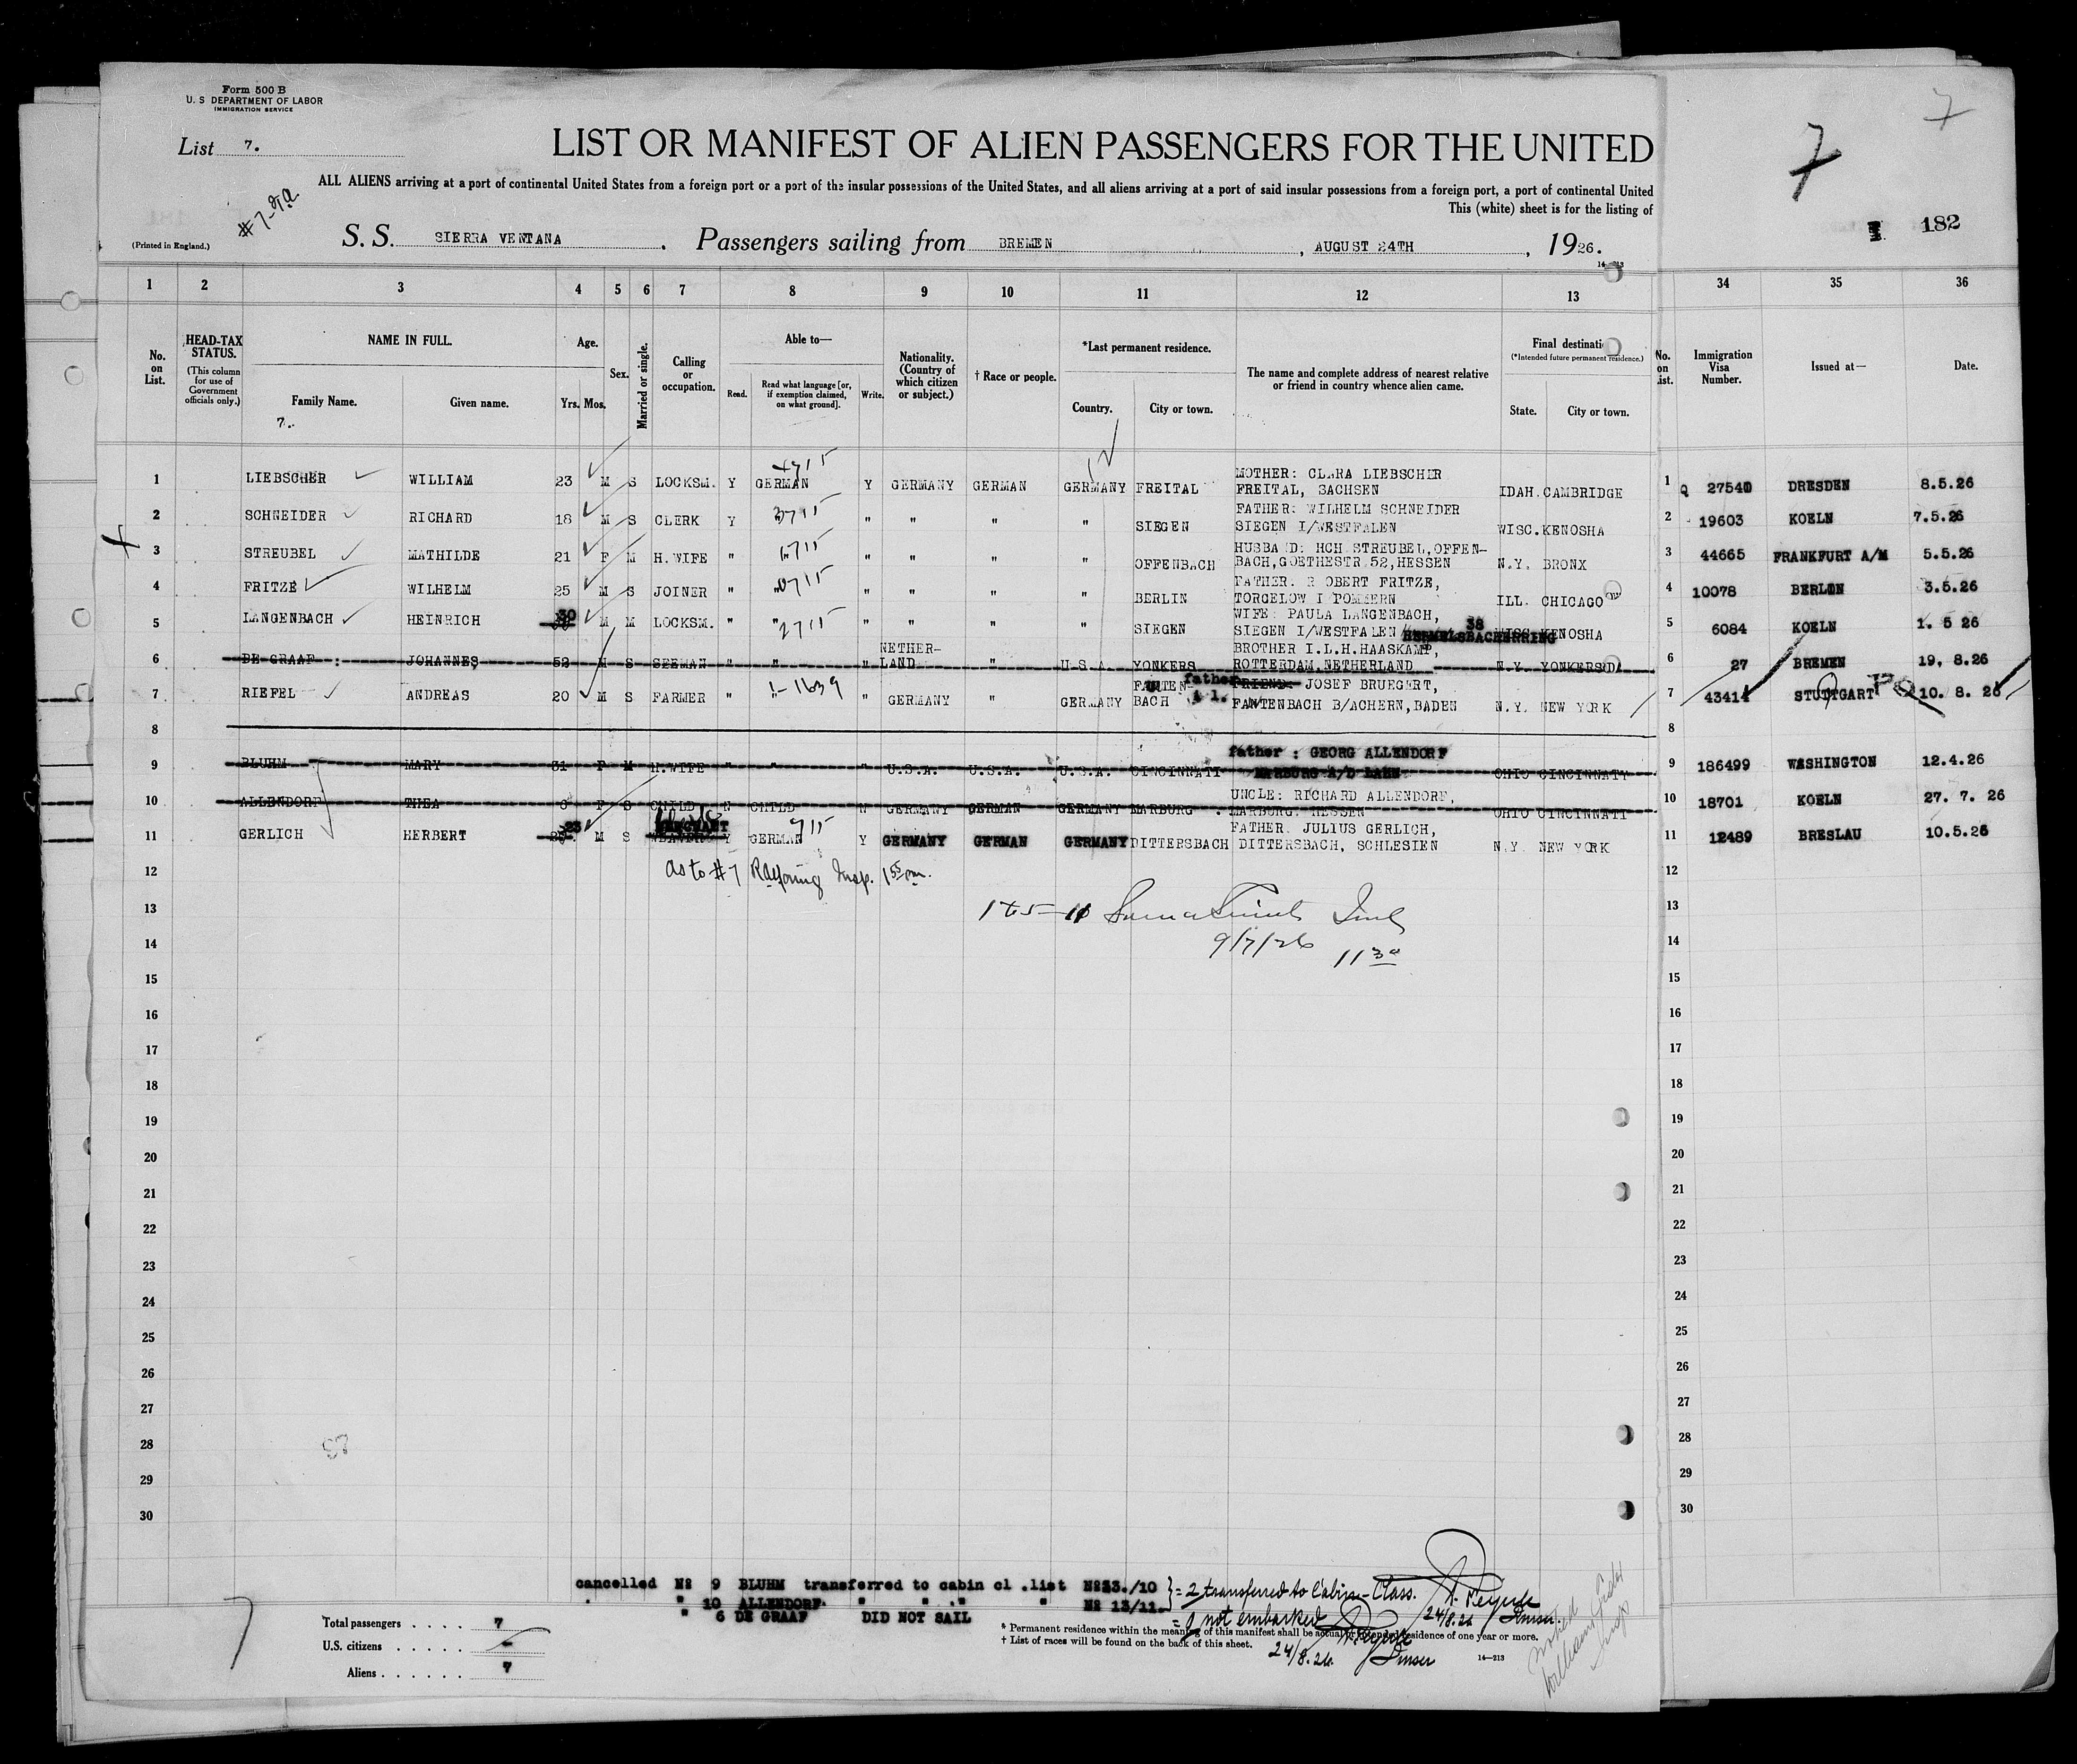 Form 500 B
U. S DEPARTMENT OF LABOR
IMMIGRATION SERVICE
List 7.
LIST OR MANIFEST OF ALIEN PASSENGERS FOR THE UNITED
ALL ALIENS arriving at a port of continental United States from a foreign port or a port of the insular possessions of the United States, and all aliens arriving at a port of said insular possessions from a foreign port, a port of continental United
This (white) sheet is for the listing of
(Printed in England.)
S. S. SIERRA VENTANA . Passengers sailing from BREMEN , AUGUST 24TH , 1926.
7
7
182
1 2 3 4 5 6 7 8 9 10 11 12 13 34 35 36
No. on List.
HEAD-TAX STATUS.
(This column for use of Government officials only.)
NAME IN FULL.
Family Name.
7.
Given name.
Age.
Yrs. Mos.
Sex.
Married or single.
Calling or occupation.
Able to—
Read.
Read what language [or, if exemption claimed, on what ground].
Write.
Nationality. (Country of which citizen or subject.)
† Race or people.
*Last permanent residence.
Country.
City or town.
The name and complete address of nearest relative or friend in country whence alien came.
Final destinatio
(*Intended future permanent residence.)
State.
City or town.
No. on List.
Immigration Visa Number.
Issued at—
Date.
1 LIEBSCHER WILLIAM 23 M S LOCKSM. Y GERMAN Y GERMANY GERMAN GERMANY FREITAL MOTHER: CLARA LIEBSCHER FREITAL, SACHSEN IDAH. CAMBRIDGE 1 Q 27540 DRESDEN 8.5.26
2 SCHNEIDER RICHARD 18 M S CLERK Y " " " " SIEGEN FATHER: WILHELM SCHNEIDER SIEGEN I/WESTFALEN WISC. KENOSHA 2 19603 KOELN 7.5.26
3 STREUBEL MATHILDE 21 F M H.WIFE " " " " " OFFENBACH HUSBAND: HCH STREUBEL, OFFEN- BACH, GOETHESTR 52, HESSEN N.Y. BRONX 3 44665 FRANKFURT A/M 5.5.26
4 FRITZE WILHELM 25 M S JOINER " " " " " " BERLIN FATHER. ROBERT FRITZE, TORGELOW I POMMERN ILL. CHICAGO 4 10078 BERLIN 3.5.26
5 LANGENBACH HEINRICH 30 M M LOCKSM. " " " " " " SIEGEN WIFE: PAULA LANGENBACH, SIEGEN I/WESTFALEN HERMELSBACHERRING 38 WISC. KENOSHA 5 6084 KOELN 1. 5 26
6 DE GRAAF JOHANNES 52 M S SEEMAN " " " NETHER- LAND " U.S.A. YONKERS BROTHER I.L.H.HAASKAMP, ROTTERDAM, NETHERLAND N.Y. YONKERS 6 27 BREMEN 19. 8.26
7 RIEFEL ANDREAS 20 M S FARMER " " " GERMANY " GERMANY FAUTEN- BACH father FRIEND: JOSEF BRUEGERT, FAUTENBACH B/ACHERN, BADEN N.Y. NEW YORK 7 43414 STUTTGART 10. 8. 26
8 8
9 BLUHM MARY 31 F M H.WIFE " " " U.S.A. U.S.A. U.S.A. CINCINNATI father : GEORG ALLENDORF MARBURG A/D LAHN OHIO CINCINNATI 9 186499 WASHINGTON 12.4.26
10 ALLENDORF THEA F S CHILD N CHILD N GERMANY GERMAN GERMANY MARBURG UNCLE: RICHARD ALLENDORF, MARBURG. HESSEN OHIO CINCINNATI 10 18701 KOELN 27. 7. 26
11 GERLICH HERBERT 23 M S MERCHANT WEAVER Y GERMAN Y GERMANY GERMAN GERMANY DITTERSBACH FATHER. JULIUS GERLICH, DITTERSBACH, SCHLESIEN N.Y. NEW YORK 11 12489 BRESLAU 10.5.26
12 As to #7 Insp. 12
13 1 to 5 - 11 13
14 9/7/26 11 30 14
15 15
16 16
17 17
18 18
19 19
20 20
21 21
22 22
23 23
24 24
25 25
26 26
27 27
28 28
29 29
30 30
cancelled № 9 BLUHM transferred to cabin cl .list №13./10 } = 2 transferred to Cabin-Class.
" 10 ALLENDORF " " " " № 13/11. 24/8.26
" 6 DE GRAAF DID NOT SAIL = not embarked
7
Total passengers . . . . 7
U.S. citizens . . . . . –
Aliens . . . . . . 7
* Permanent residence within the meaning of this manifest shall be actual or intended residence of one year or more.
† List of races will be found on the back of this sheet.
24/8.26.
14—213